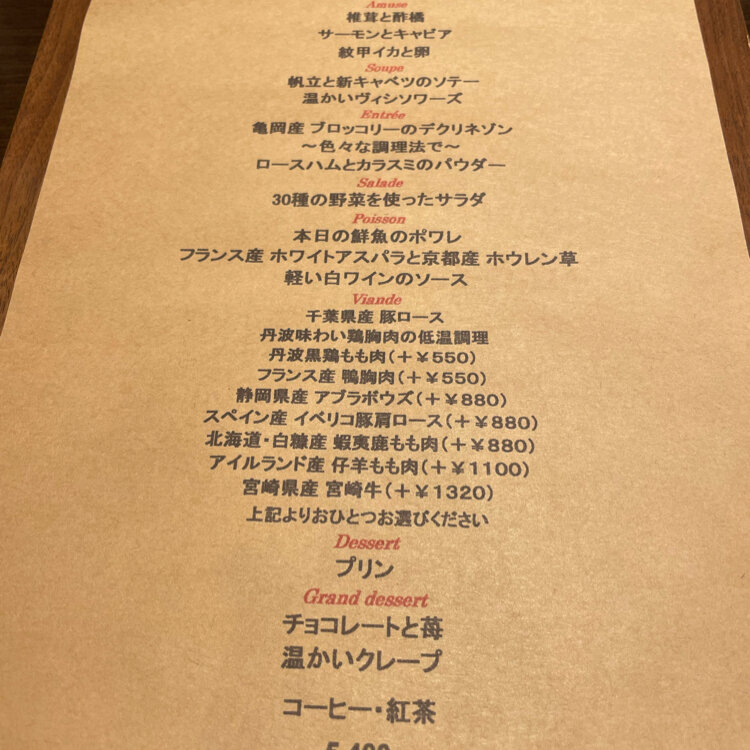 Amuse
椎茸と酢橘
サーモンとキャビア
紋甲イカと卵
Soupe
帆立と新キャベツのソテー
温かいヴィシソワーズ
Entrée
亀岡産 ブロッコリーのデクリネゾン
〜色々な調理法で〜
ロースハムとカラスミのパウダー
Salade
30種の野菜を使ったサラダ
Poisson
本日の鮮魚のポワレ
フランス産 ホワイトアスパラと京都産 ホウレン草
軽い白ワインのソース
Viande
千葉県産 豚ロース
丹波味わい鶏胸肉の低温調理
丹波黒鶏もも肉(+¥550)
フランス産 鴨胸肉(+¥550)
静岡県産 アブラボウズ(+¥880)
スペイン産 イベリコ豚肩ロース(+¥880)
北海道・白糠産 蝦夷鹿もも肉(+¥880)
アイルランド産 仔羊もも肉(+¥1100)
宮崎県産 宮崎牛(+¥1320)
上記よりおひとつお選びください
Dessert
プリン
Grand dessert
チョコレートと苺
温かいクレープ
コーヒー・紅茶